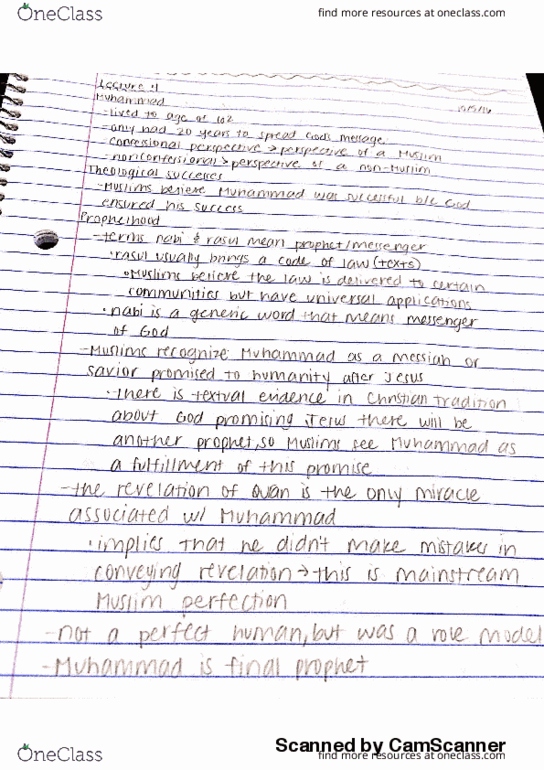 OneClass
find more resources at oneclass.com
Lecture 4
Muhammad
-lived to age of 62
-only had 20 years to spread God's message
-confessional perspective → perspective of a Muslim
-nonconfessional → perspective of a non-Muslim
Theological successes
-Muslims believe Muhammad was successful b/c God
ensured his success
Prophethood
-terms nabi & rasul mean prophet/messenger
•rasul usually brings a code of law (texts)
•Muslims believe the law is delivered to certain
communities but have universal applications
•nabi is a generic word that means messenger
of God
-Muslims recognize Muhammad as a messiah or
savior promised to humanity after Jesus
•there is textual evidence in Christian tradition
about God promising Jesus there will be
another prophet, so Muslims see Muhammad as
a fulfillment of this promise
-the revelation of Quan is the only miracle
associated w/ Muhammad
•implies that he didn't make mistakes in
conveying revelation → this is mainstream
Muslim perfection
-not a perfect human, but was a role model
-Muhammad is final prophet
Scanned by CamScanner
OneClass
find more resources at oneclass.com